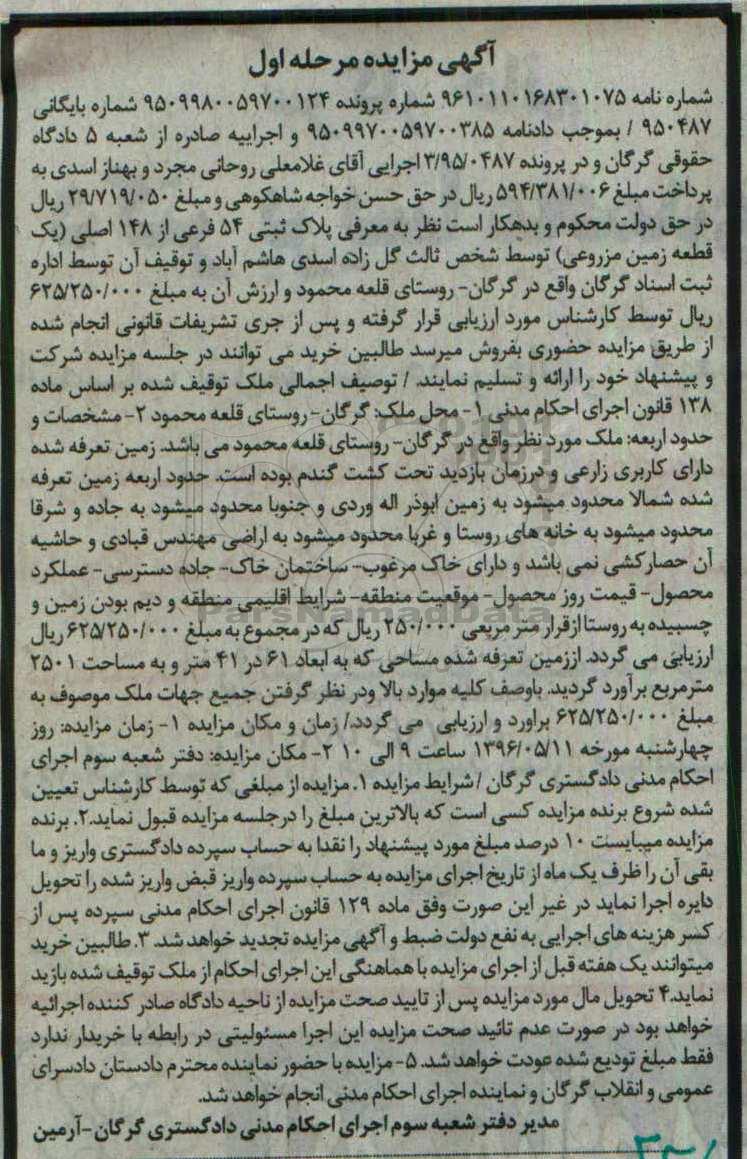 آگهی مزایده مرحله اول
شماره نامه ۹۶۱۰۱۱۰۱۶۸۳۰۱۰۷۵ شماره پرونده ۹۵۰۹۹۸۰۰۵۹۷۰۰۱۲۴ شماره بایگانی
۹۵۰۴۸۷ / بموجب دادنامه ۹۵۰۹۹۷۰۰۵۹۷۰۰۳۸۵ و اجراییه صادره از شعبه ۵ دادگاه
حقوقی گرگان و در پرونده ۳/۹۵/۰۴۸۷ اجرایی آقای غلامعلی روحانی مجرد و بهناز اسدی به
پرداخت مبلغ ۵۹۴/۳۸۱/۰۰۶ ریال در حق حسن خواجه شاهکوهی و مبلغ ۲۹/۷۱۹/۰۵۰ ریال
در حق دولت محکوم و بدهکار است نظر به معرفی پلاک ثبتی ۵۴ فرعی از ۱۴۸ اصلی (یک
قطعه زمین مزروعی) توسط شخص ثالث گل زاده اسدی هاشم آباد و توقیف آن توسط اداره
ثبت اسناد گرگان واقع در گرگان- روستای قلعه محمود و ارزش آن به مبلغ ۶۲۵/۲۵۰/۰۰۰
ریال توسط کارشناس مورد ارزیابی قرار گرفته و پس از جری تشریفات قانونی انجام شده
از طریق مزایده حضوری بفروش میرسد طالبین خرید می توانند در جلسه مزایده شرکت
و پیشنهاد خود را ارائه و تسلیم نمایند. / توصیف اجمالی ملک توقیف شده بر اساس ماده
۱۳۸ قانون اجرای احکام مدنی ۱- محل ملک: گرگان- روستای قلعه محمود ۲- مشخصات و
حدود اربعه: ملک مورد نظر واقع در گرگان- روستای قلعه محمود می باشد. زمین تعرفه شده
دارای کاربری زارعی و درزمان بازدید تحت کشت گندم بوده است. حدود اربعه زمین تعرفه
شده شمالا محدود میشود به زمین ابوذر اله وردی و جنوبا محدود میشود به جاده و شرقا
محدود میشود به خانه های روستا و غربا محدود میشود به اراضی مهندس قبادی و حاشیه
آن حصارکشی نمی باشد و دارای خاک مرغوب- ساختمان خاک- جاده دسترسی- عملکرد
محصول- قیمت روز محصول- موقعیت منطقه- شرایط اقلیمی منطقه و دیم بودن زمین و
چسبیده به روستا ازقرار متر مربعی ۲۵۰/۰۰۰ ریال که در مجموع به مبلغ ۶۲۵/۲۵۰/۰۰۰ ریال
ارزیابی می گردد. اززمین تعرفه شده مساحی که به ابعاد ۶۱ در ۴۱ متر و به مساحت ۲۵۰۱
مترمربع برآورد گردید. باوصف کلیه موارد بالا ودر نظر گرفتن جمیع جهات ملک موصوف به
مبلغ ۶۲۵/۲۵۰/۰۰۰ براورد و ارزیابی می گردد./ زمان و مکان مزایده ۱- زمان مزایده: روز
چهارشنبه مورخه ۱۳۹۶/۰۵/۱۱ ساعت ۹ الی ۱۰ ۲- مکان مزایده: دفتر شعبه سوم اجرای
احکام مدنی دادگستری گرگان / شرایط مزایده ۱. مزایده از مبلغی که توسط کارشناس تعیین
شده شروع برنده مزایده کسی است که بالاترین مبلغ را درجلسه مزایده قبول نماید.۲. برنده
مزایده میبایست ۱۰ درصد مبلغ مورد پیشنهاد را نقدا به حساب سپرده دادگستری واریز و ما
بقی آن را ظرف یک ماه از تاریخ اجرای مزایده به حساب سپرده واریز قبض واریز شده را تحویل
دایره اجرا نماید در غیر این صورت وفق ماده ۱۲۹ قانون اجرای احکام مدنی سپرده پس از
کسر هزینه های اجرایی به نفع دولت ضبط و آگهی مزایده تجدید خواهد شد. ۳. طالبین خرید
میتوانند یک هفته قبل از اجرای مزایده با هماهنگی این اجرای احکام از ملک توقیف شده بازید
نماید.۴ تحویل مال مورد مزایده پس از تایید صحت مزایده از ناحیه دادگاه صادر کننده اجرائیه
خواهد بود در صورت عدم تائید صحت مزایده این اجرا مسئولیتی در رابطه با خریدار ندارد
فقط مبلغ تودیع شده عودت خواهد شد. ۵- مزایده با حضور نماینده محترم دادستان دادسرای
عمومی و انقلاب گرگان و نماینده اجرای احکام مدنی انجام خواهد شد.
مدیر دفتر شعبه سوم اجرای احکام مدنی دادگستری گرگان- آرمین